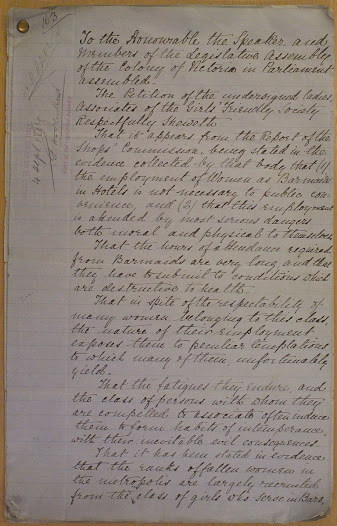 163
To the Honourable the Speaker, and
Members of the Legislative Assembly
of the Colony of Victoria in Parliament
assembled.
The Petition of the undersigned ladies,
Associates of the Girls' Friendly Society
Respectfully Sheweth
That it appears from the Report of the
Shops' Commission, being stated in the
evidence collected by that body that (1)
the employment of Women as Barmaids
in Hotels is not necessary to public con-
venience, and (2) that this employment
is attended by most serious dangers
both moral and physical to themselves.
That the hours of attendance required
from Barmaids are very long and that
they have to submit to conditions which
are destructive to health.
That in spite of the respectability of
many women belonging to this class,
the nature of their employment
exposes them to peculiar temptations
to which many of them unfortunately
yield.
That the fatigues they endure, and
the class of persons with whom they
are compelled to associate often induce
them to form habits of intemperance
with their inevitable evil consequences.
That it has been stated in evidence
that the ranks of fallen women in
the metropolis are largely recruited
from the class of girls who serve in Bars,
4 Sept